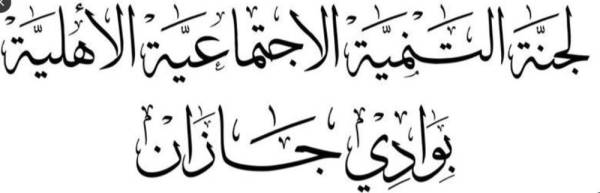 لجنة التنمية الاجتماعية الأهلية
بوادي جازان